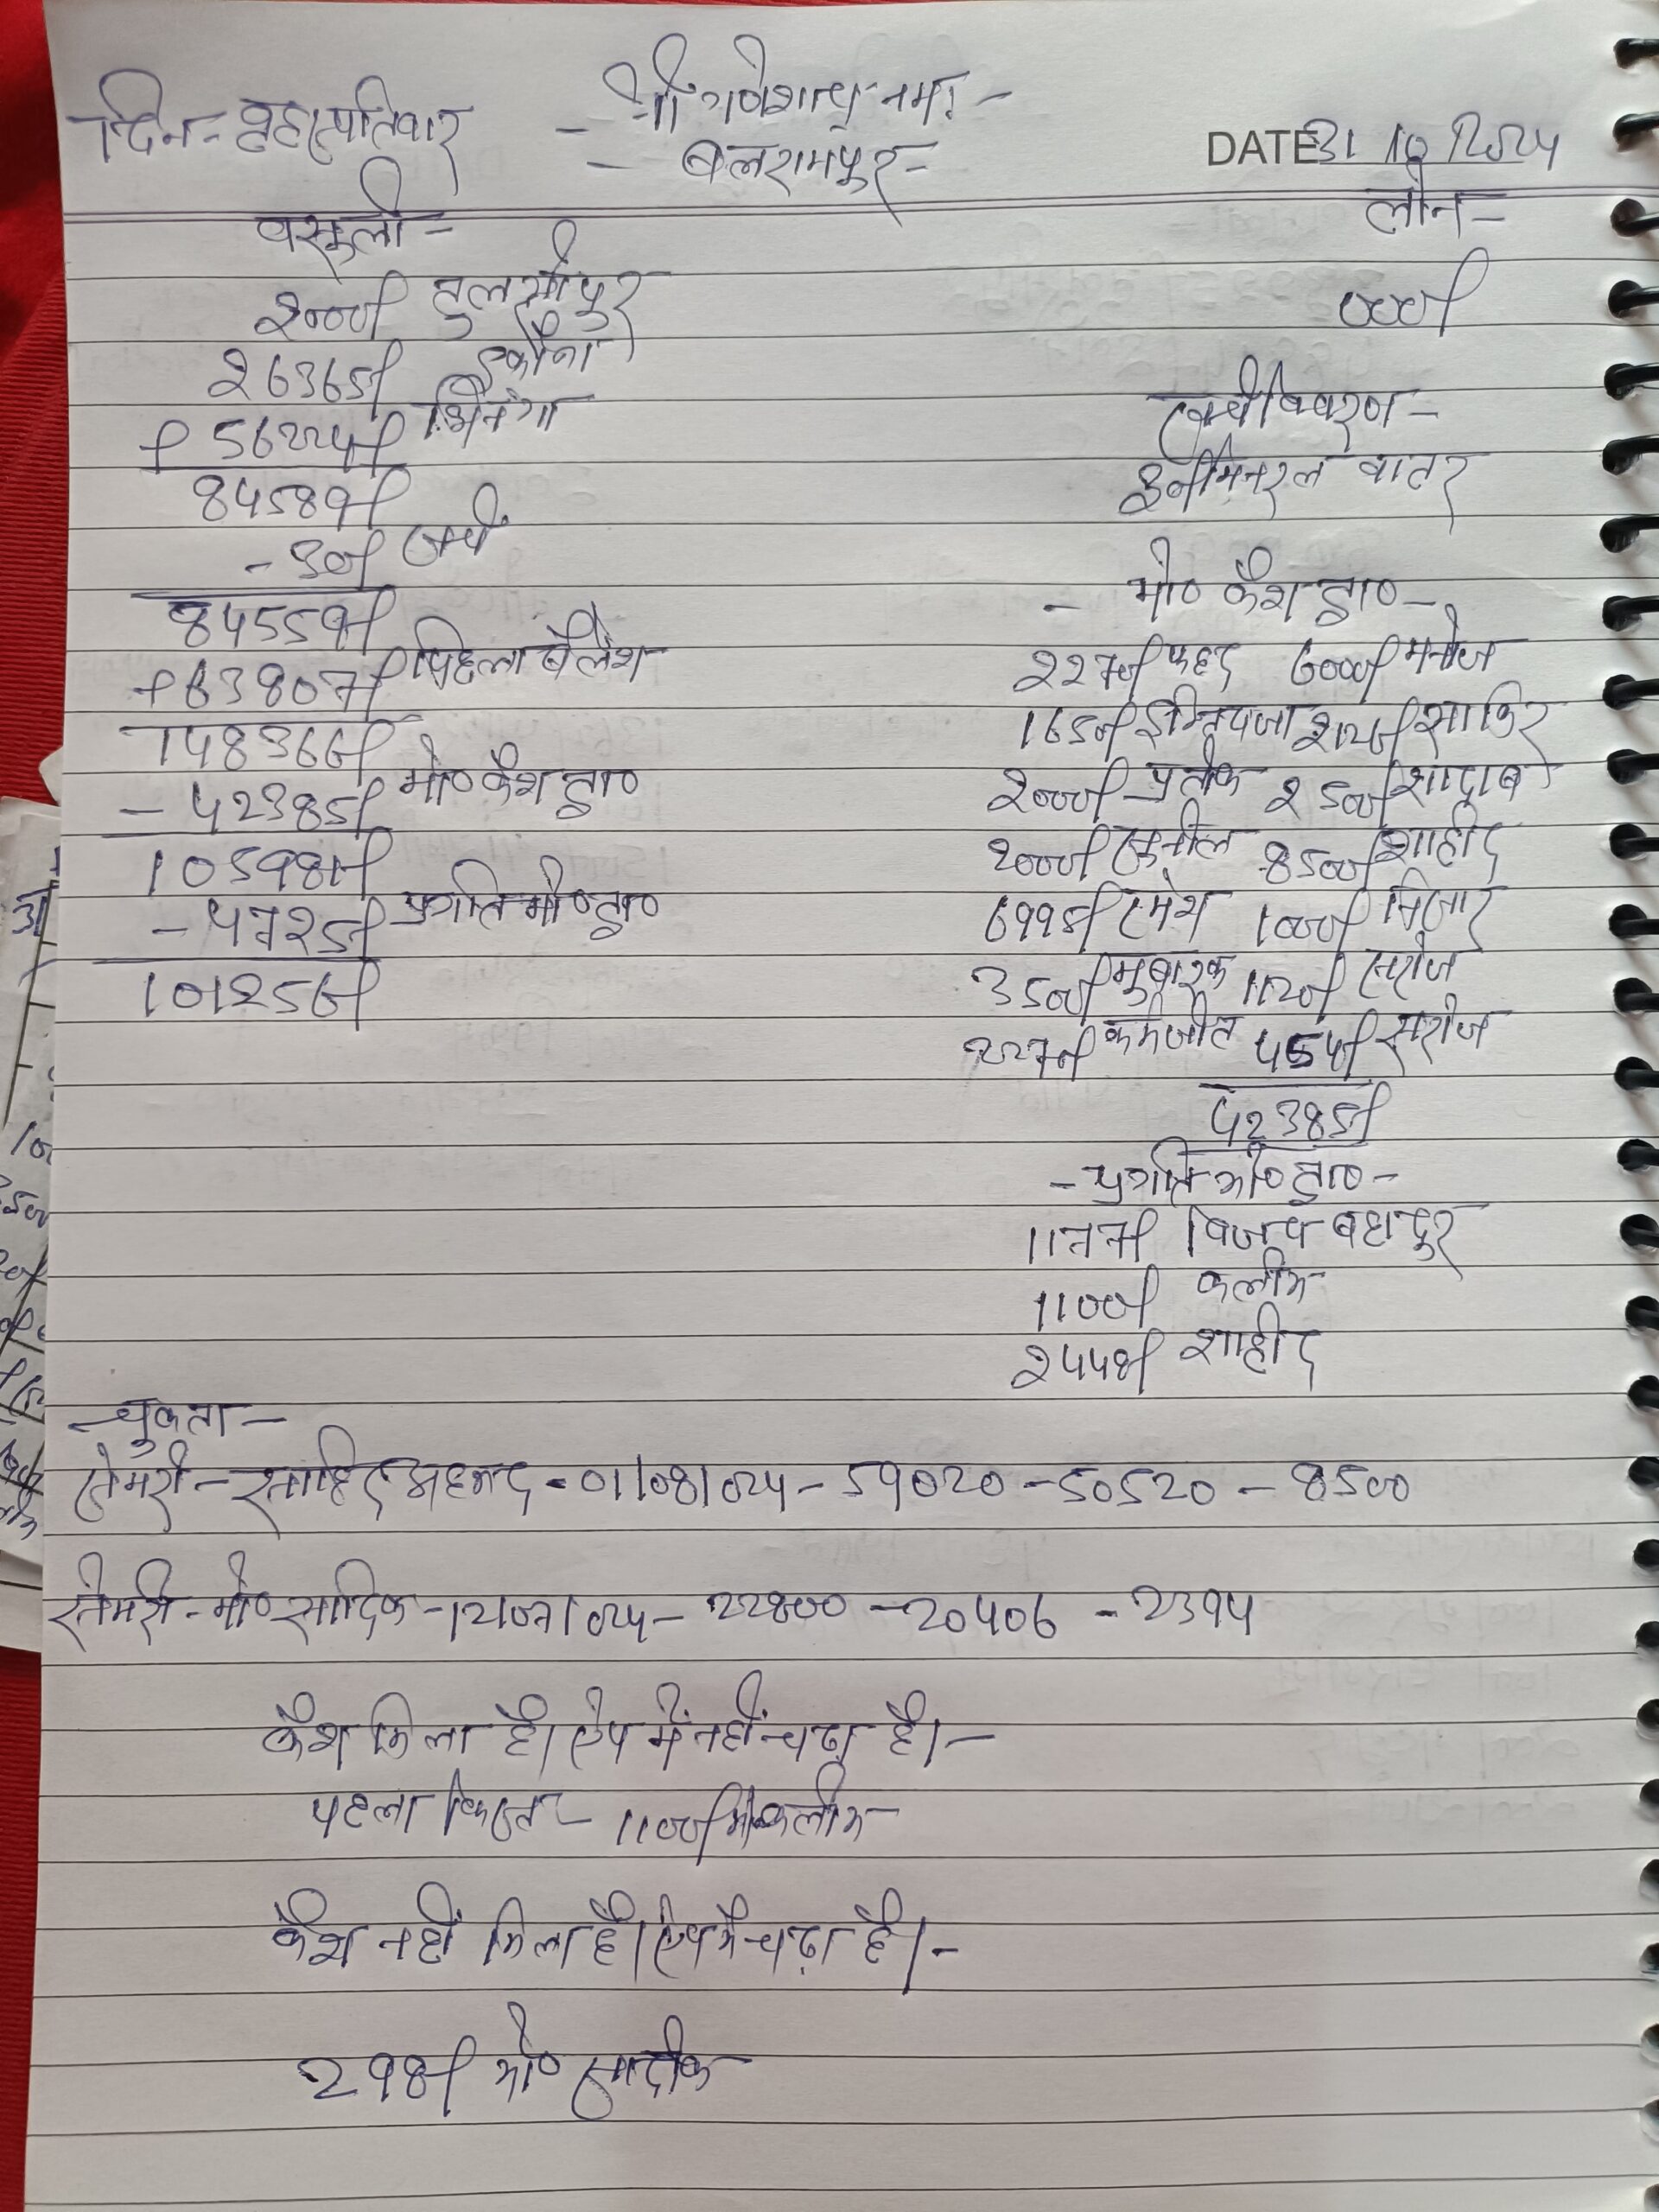 दिन - बृहस्पतिवार
- श्री गणेशाय नमः -
- बलरामपुर -
DATE 31/10/2024
वसूली -
2000/ तुलसीपुर
26365/ इकौना
+ 56224/ भिनगा
84589/
- 30/ खर्च
84559/
+ 63807/ पिछला बैलेंश
148366/
- 42385/ मो० कैश द्वा०
105981/
- 4725/ प्रगति मो० द्वा०
101256/
लोन -
000/
खर्च विवरण -
30/ मिनरल वाटर
- मो० कैश द्वा० -
2270/ फहद 6000/ मनोज
1650/ 2120/ शाकिर
2000/ प्रतीक 2500/ शादाब
2000/ सुनील 8500/ शाहीद
6995/ रमेश 1000/ निजार
3500/ मुबारक 1120/ सरोज
2270/ कर्मजीत 454/ सरोज
42385/
- प्रगति मो० द्वा० -
1177/ विजय बहादुर
1100/ कलीम
2448/ शाहीद
- चुकता -
सेमरी - साहिद अहमद - 01/08/024 - 59020 - 50520 - 8500
सेमरी - मो० सादिक - 12/07/024 - 22800 - 20406 - 2394
कैश मिला है। ऐप में नहीं चढ़ा है। -
पहला किस्त - 1100/ मो० कलीम
कैश नहीं मिला है। ऐप मे चढ़ा है। -
298/ मो० सादीक